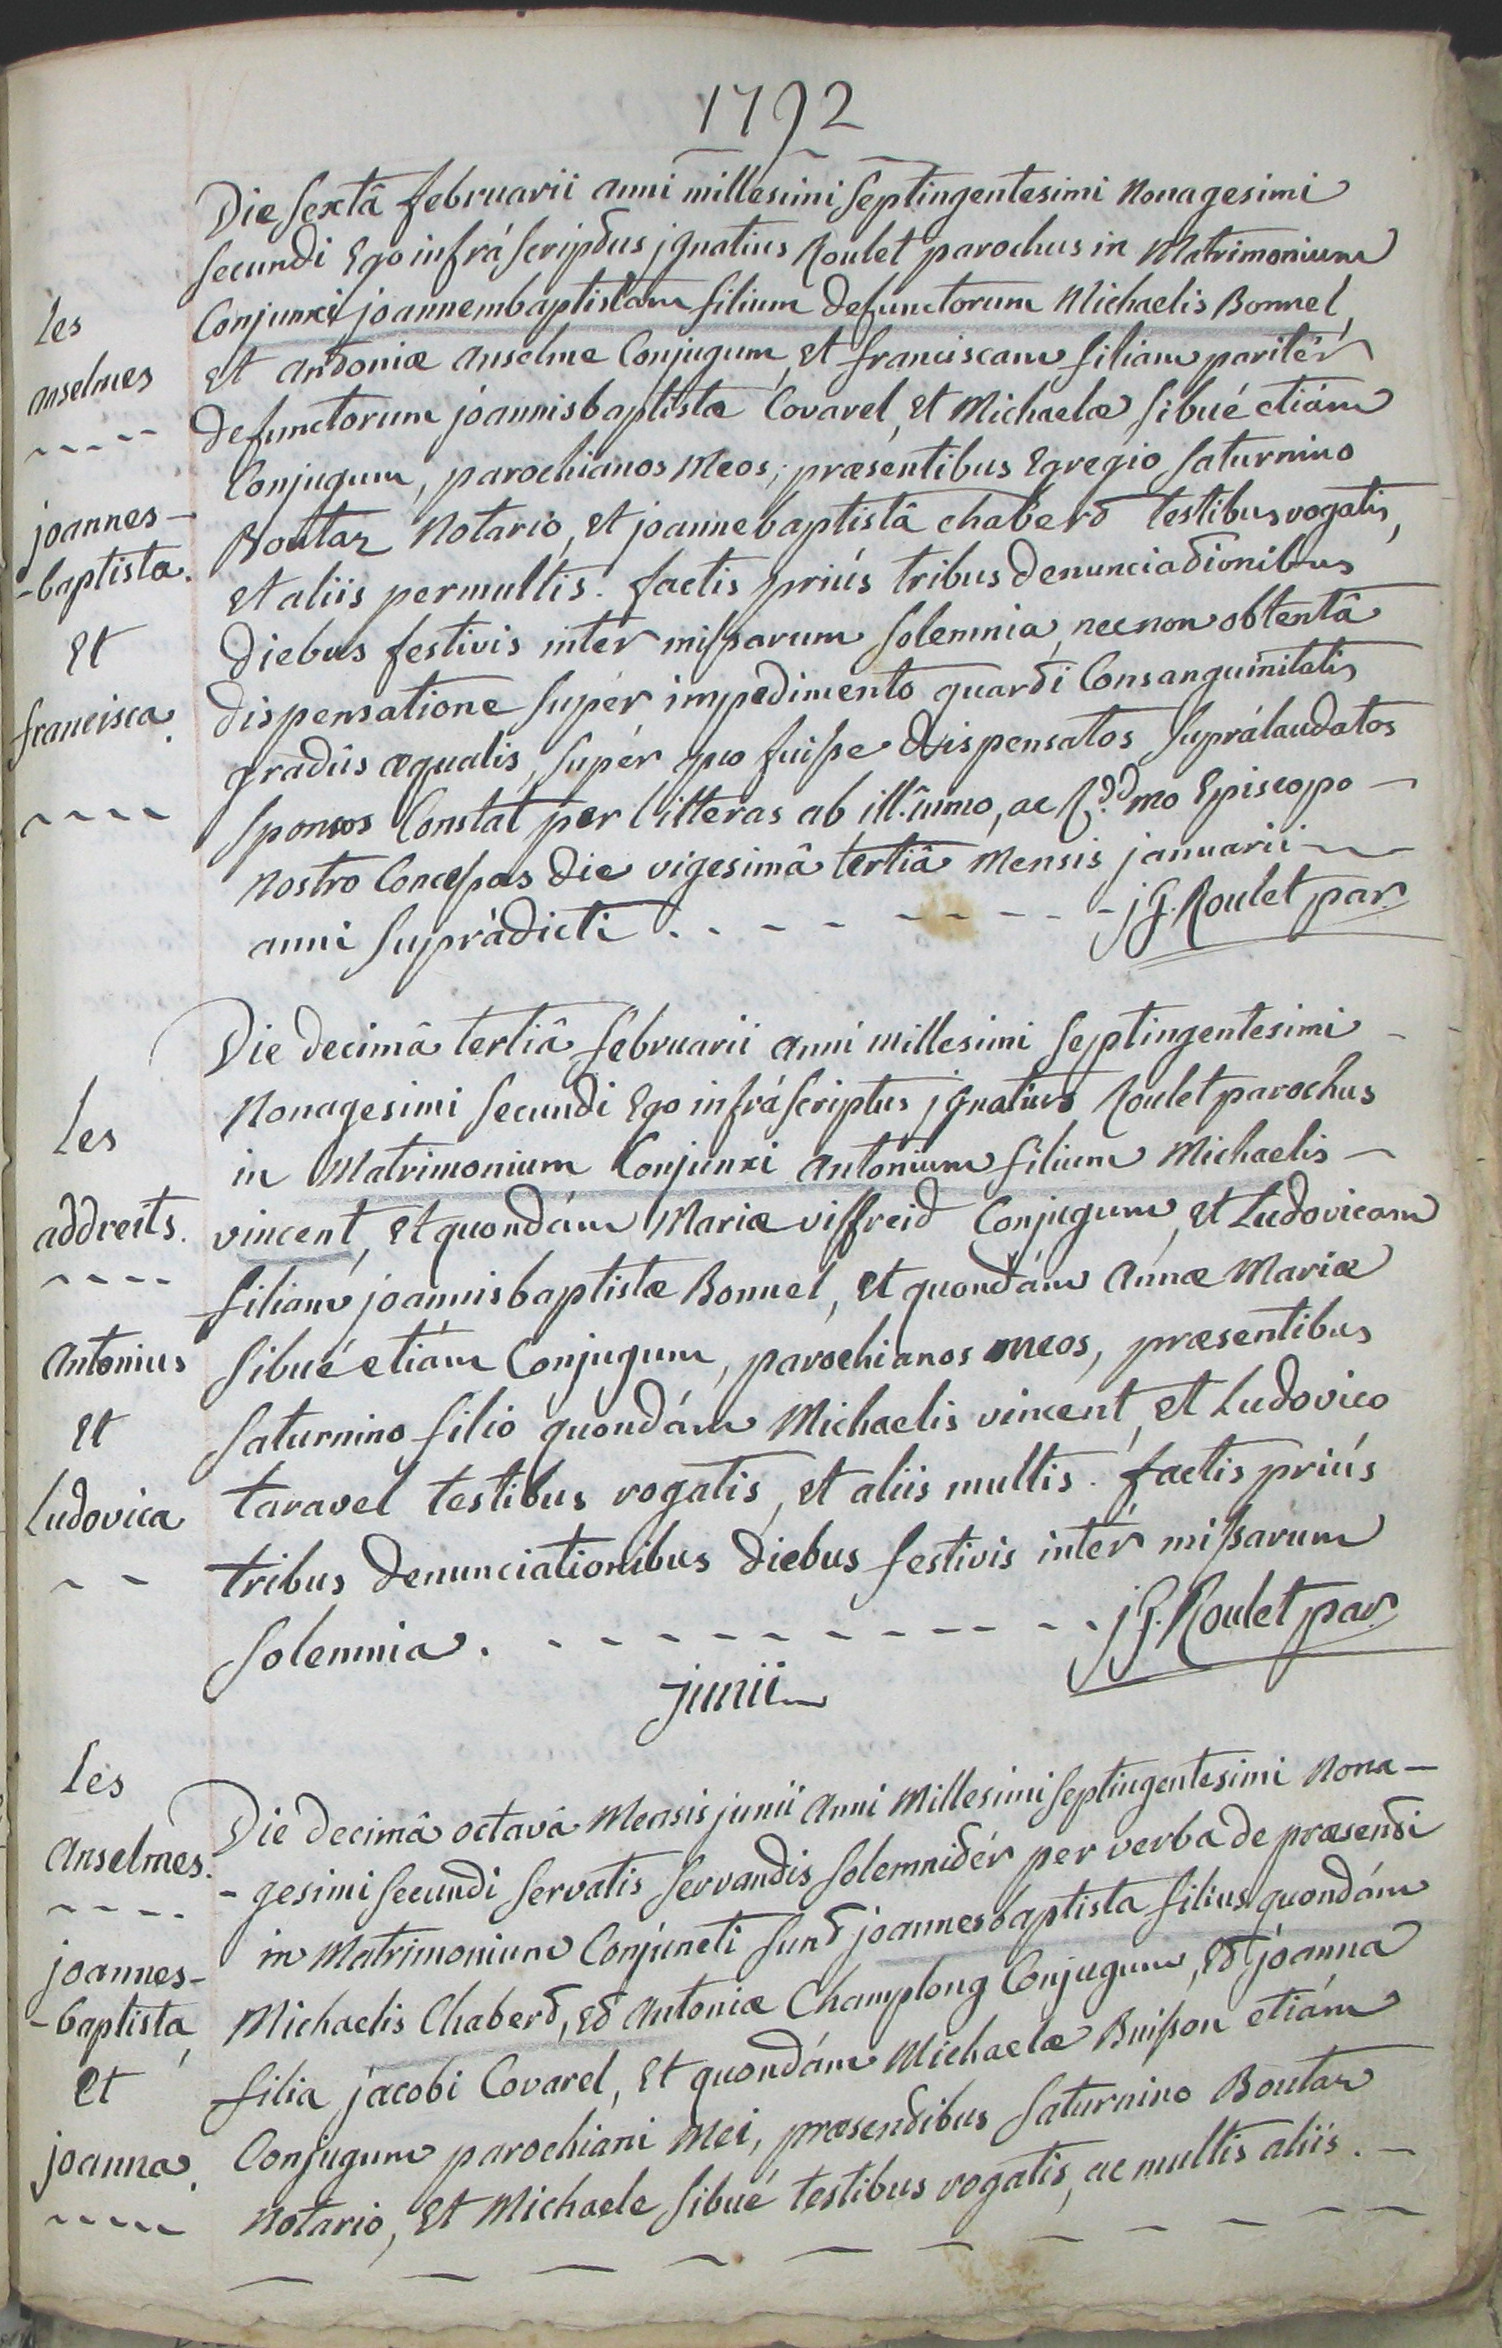 1792
les
anselmes
joannes-
-baptista.
Et
francisca.
Die sextâ februarii anni millesimi septingentesimi Nonagesimi
secundi Ego infrá scriptus jgnatius Roulet parochus in Matrimonium
Conjunxi joannembaptistam filium defunctorum Michaelis Bonnel,
et antoniæ anselme Conjugum, et franciscam filiam paritér
defunctorum joannisbaptistæ Covarel, et Michaelæ Sibué etiám
Conjugum, parochianos Meos, præsentibus Egregio Saturnino
Boutaz Notario, et joannebaptistâ chabert testibus rogatis,
et aliis permultis. factis priús tribus denunciationibus
diebus festivis intér missarum solemnia, necnon obtentâ
dispensatione supér impedimento quarti Consanguinitatis
gradûs æqualis, supér quo fuisse dispensatos suprálaudatos
sponsos Constat per litteras ab ill.ûmo, ac R.ddmo Episcopo
nostro Concessas die vigesimâ tertiâ Mensis januarii
anni suprádicti - - - - - - - - jG. Roulet par.
les
addreits.
antonius
Et
Ludovica
Die decimâ tertiâ februarii anni millesimi septingentesimi
Nonagesimi secundi Ego infrá scriptus jgnatius Roulet parochus
in Matrimonium Conjunxi antonium filium Michaelis
vincent, et quondám Mariæ viffreid Conjugum, et Ludovicam
filiam joannisbaptistæ Bonnel, et quondám annæ Mariæ
Sibué etiám Conjugum, parochianos meos, præsentibus
Saturnino filio quondám Michaelis vincent, et Ludovico
taravel testibus rogatis, et aliis multis. factis priús
tribus denunciationibus diebus festivis intér missarum
solemnia. - - - - - - - - - - jG. Roulet par.
junii
les
anselmes.
joannes-
-baptista,
et
joanna.
Die decimâ octavâ Mensis junii anni Millesimi septingentesimi Nona-
-gesimi secundi servatis servandis solemnitér per verba de præsenti
in Matrimonium Conjuncti sunt joannesbaptista filius quondám
Michaelis Chabert, et antoniæ Champlong Conjugum, et joanna
filia jacobi Covarel, et quondám Michaelæ Buisson etiám
Conjugum parochiani Mei, præsentibus Saturnino Boutaz
Notario, et Michaele Sibué testibus rogatis, ac multis aliis. -